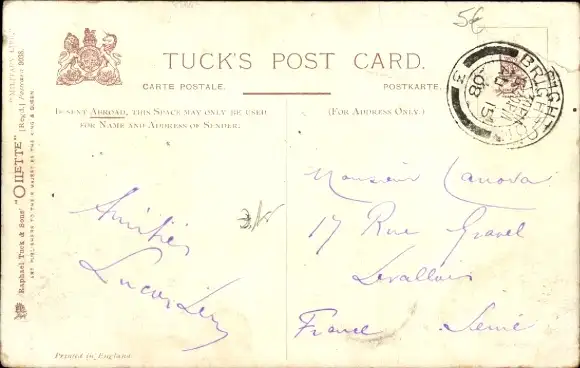 5€
TUCK'S POST CARD.
CARTE POSTALE.
POSTKARTE.
IF SENT ABROAD, THIS SPACE MAY ONLY BE USED
FOR NAME AND ADDRESS OF SENDER.
(FOR ADDRESS ONLY.)
BRIGHTON
15
08
Amitiés
Monsieur Canova
17 Rue Gravel
Levallois
France Seine
Printed in England
Raphael Tuck & Sons' "OILETTE" [Regd.] Postcard 9938.
ART PUBLISHERS TO THEIR MAJESTIES THE KING & QUEEN
"MILITARY LIFE."